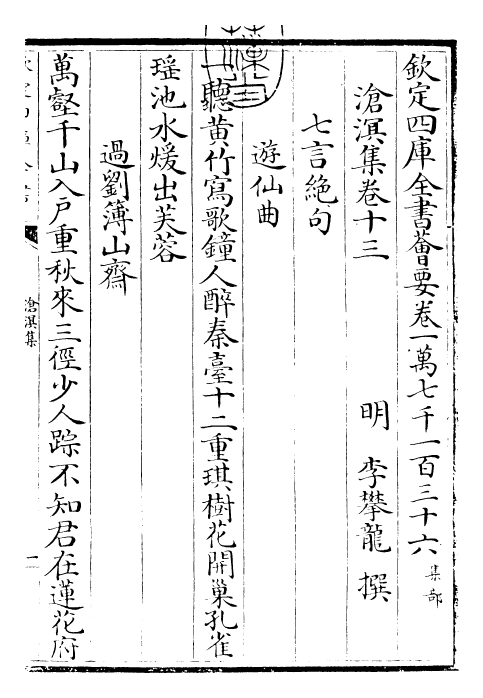 欽定四庫全書薈要卷一萬七千一百三十六 集部
滄溟集卷十三 明 李攀龍 撰
七言絕句
遊仙曲
聽黃竹寫歌鐘人醉秦臺十二重琪樹花開巢孔雀
瑶池水煖出芙蓉
過劉簿山齋
萬壑千山入戶重秋來三徑少人踪不知君在蓮花府
滄溟集
一